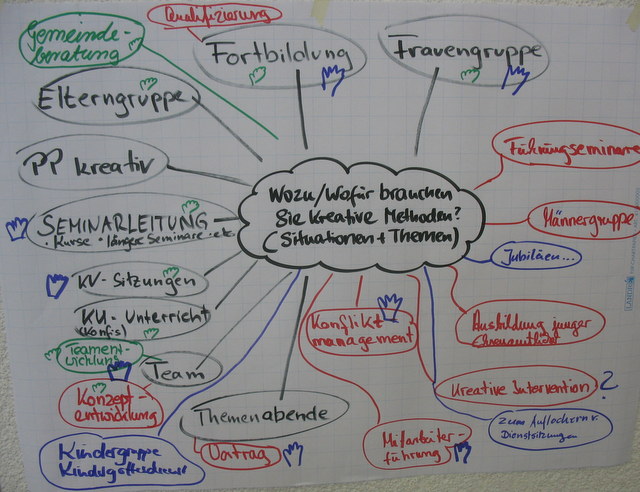 Qualifizierung
Gemeinde-
beratung
Fortbildung
Frauengruppe
Elterngruppe
PP kreativ
SEMINARLEITUNG
• Kurse • längere Seminare • etc.
KV-Sitzungen
KU-Unterricht
(Konfis)
Teament-
wicklung
Team
Konzept-
entwicklung
Kindergruppe
Kindergottesdienst
Themenabende
Vortrag
Wozu/Wofür brauchen
Sie Kreative Methoden?
(Situationen + Themen)
Führungsseminare
Männergruppe
Jubiläen...
Konflikt
management
Ausbildung junger
Ehrenamtlicher
Kreative Intervention ?
zum Auflockern v.
Dienstsitzungen
Mitarbeiter-
führung